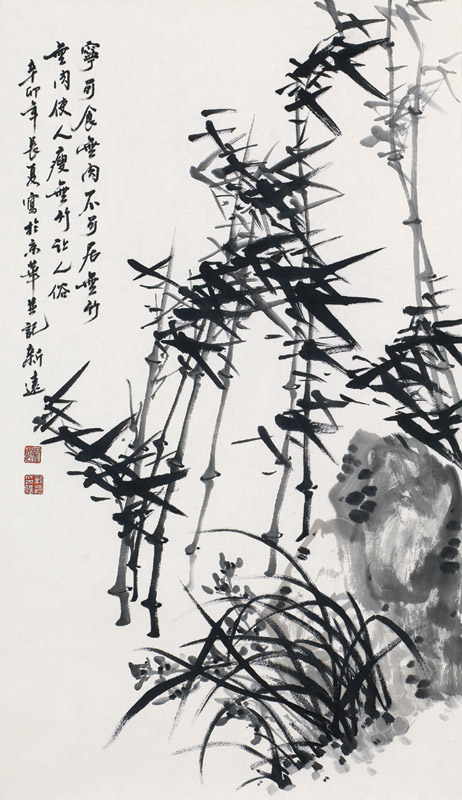 寧可食無肉不可居無竹
無肉使人瘦無竹让人俗
辛卯年長夏寫於京華並記新遠